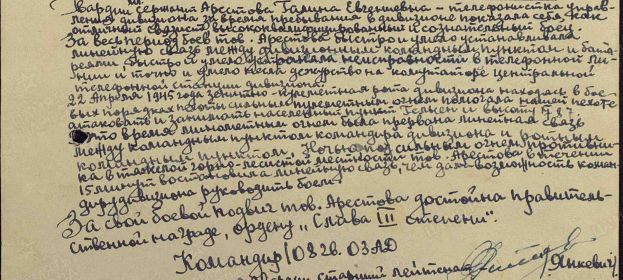 Гвардии сержант Арестова Галина Евгениевна - телефонистка управ-
ления дивизиона за время пребывания в дивизионе показала себя, как
отличный связист высококвалифицированный и сознательный боец.
За весь период боев тов. Арестова быстро и умело устанавливала
линейную связь между дивизионным командным пунктом и бата-
реями, быстро и умело устраняла неисправности в телефонной ли-
нии и точно и умело несла дежурство на комутаторе центральной
телефонной станции дивизиона.
22 Апреля 1945 года зенитно-пулеметная рота дивизиона находясь в бое-
вых порядках пехоты сильным пулеметным огнем помогала нашей пехоте
атаковать и занимать населенный пункт и высоту
В это время минометным огнем была прервана линейная связь
между командным пунктом командира дивизиона и ротным
командным пунктом. Ночью под сильным огнем противни-
ка в тяжелой горно-лесистой местности тов. Арестова в течении
15 минут востановила линейную связь, чем дала возможность коман-
диру дивизиона руководить боем.
За свой боевой подвиг тов. Арестова достойна правитель-
ственной награде, ордену "Слава III степени".
Командир 1082 в. ОЗАД
Гвардии старший лейтенант /Янкевич/